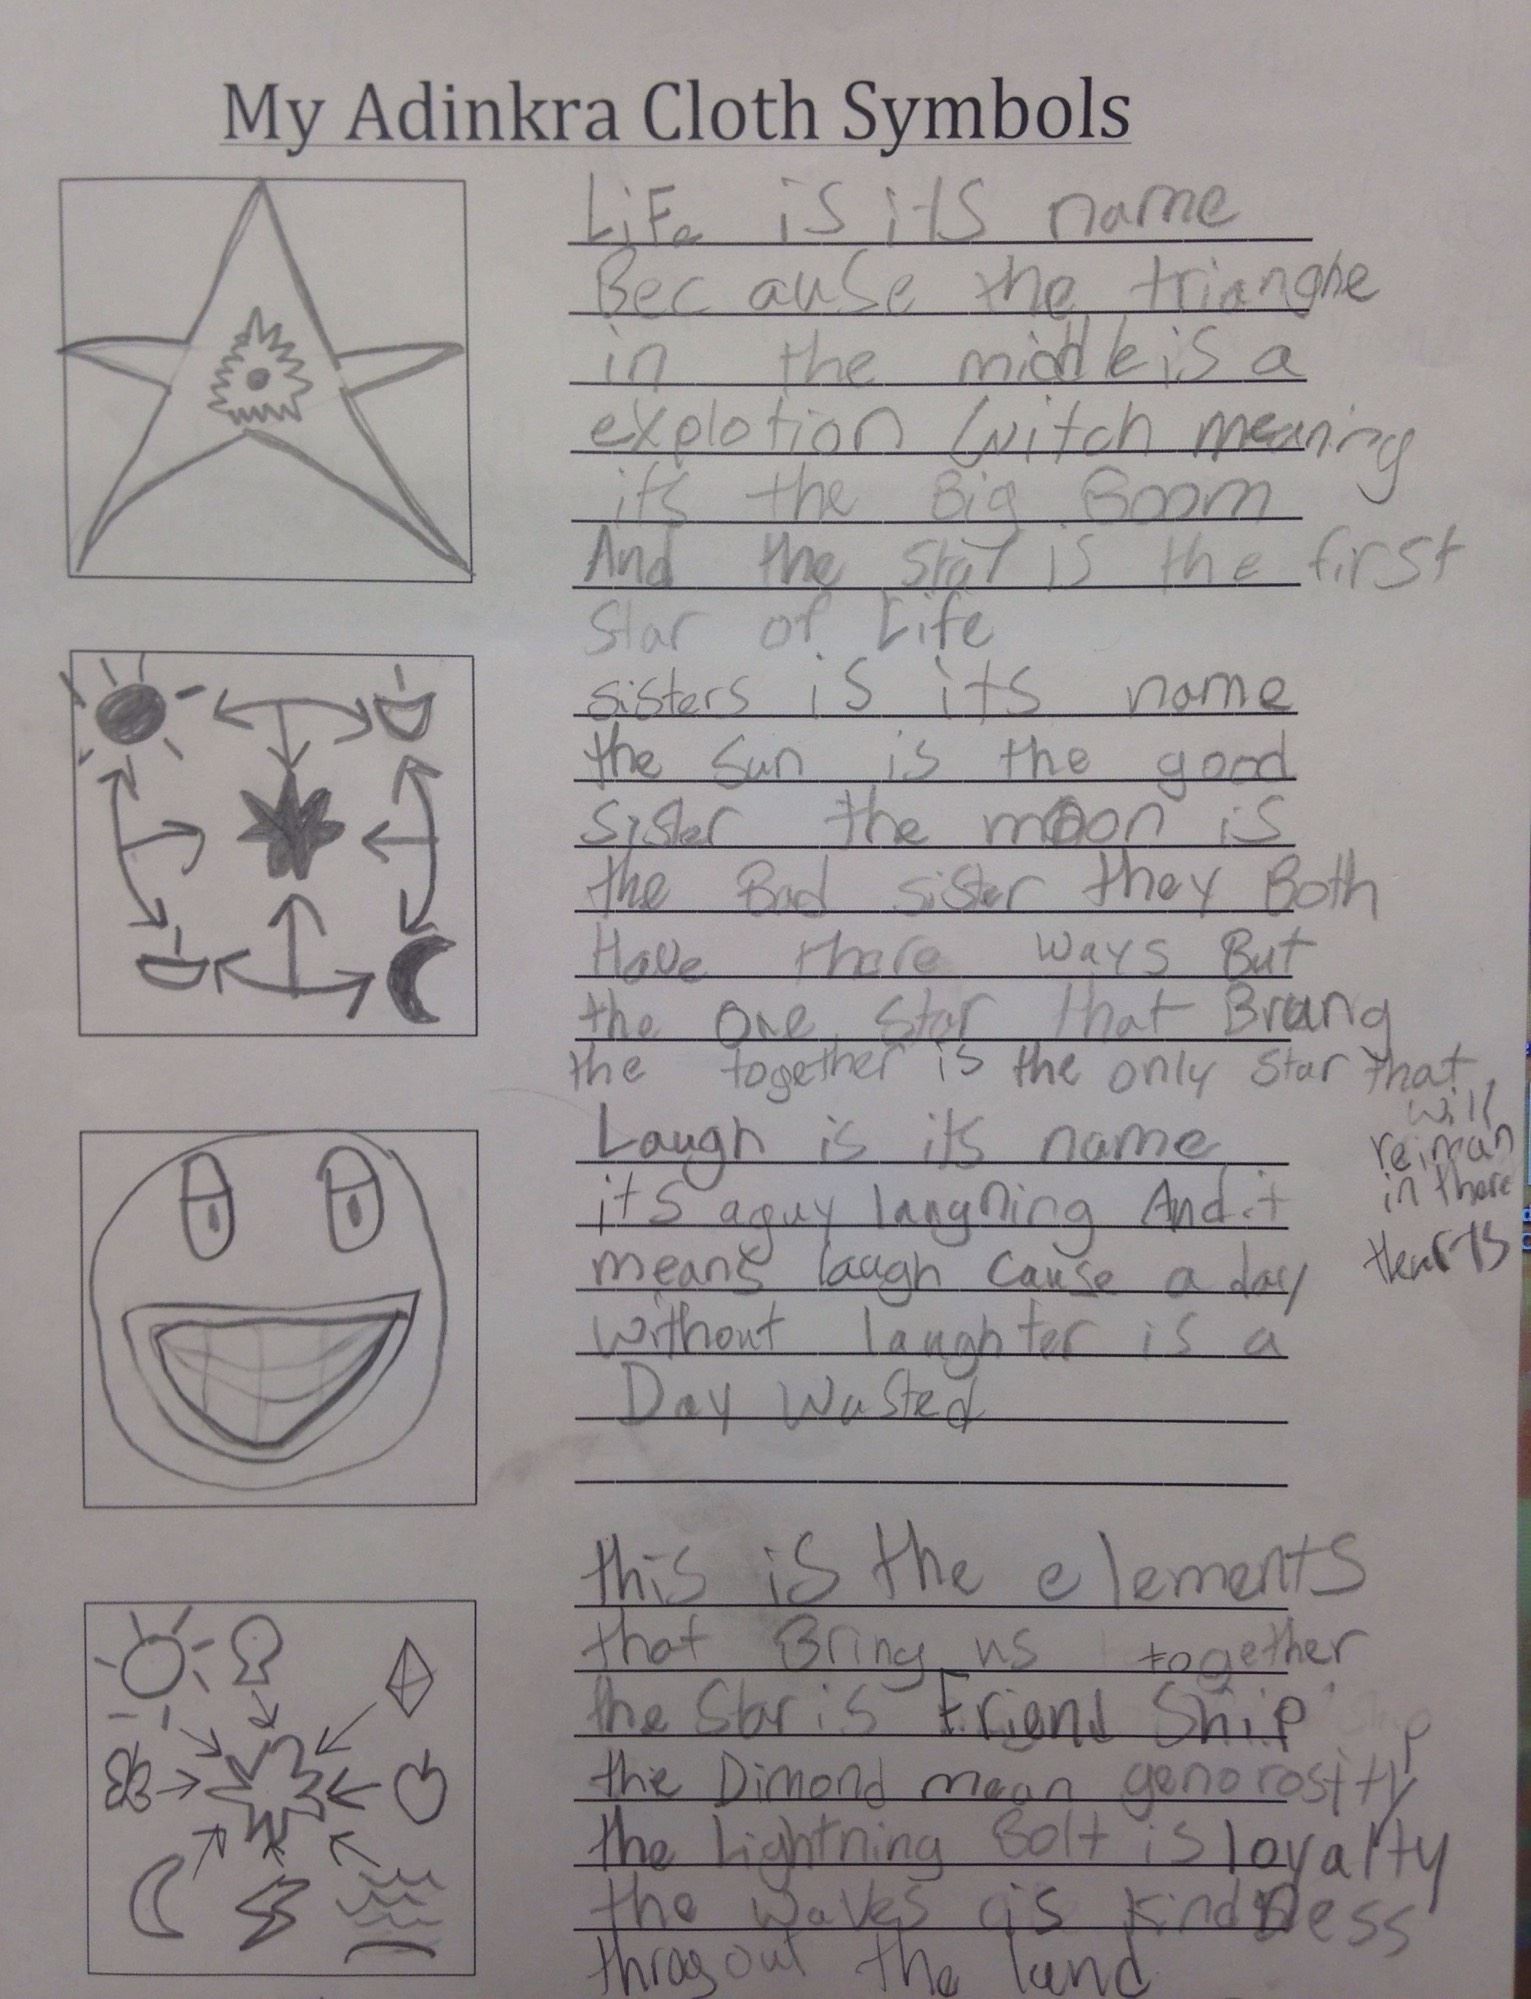 My Adinkra Cloth Symbols
LiFe is its name
Bec ause the trianghe
in the middle is a
explotion witch meaning
its the Big Boom
And the star is the first
Star of Life
sisters is its name
the sun is the good
sister the moon is
the Bad sister they Both
Have there ways But
the one star that Brang
the together is the only star that
will
reiman
in there
hearts
Laugh is its name
its a guy laughing And it
means laugh cause a day
without laughter is a
Day Wasted
this is the elements
that Bring us together
the Star is Friend Ship
the Dimond mean genorosity
the Lightning Bolt is loyalty
the waves is kindness
throgout the land